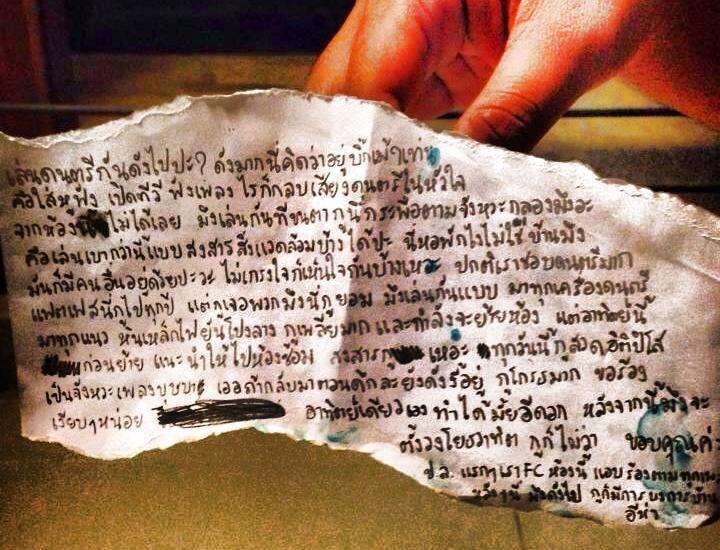 เล่นดนตรีกันดังไปปะ? ดังมากนี่คิดว่าอยู่บิ๊กเม้าเท่น
คือใส่หูฟัง เปิดทีวี ฟังเพลง ไรก็กลบเสียงดนตรีในหัวใจ
จากห้อง ไม่ได้เลย มึงเล่นกันทีขนตากูนี่กระพือตามจังหวะกลองมึงอะ
คือเล่นเบากว่านี้แบบสงสารสิ่งแวดล้อมบ้างได้ปะ นี่หอพักไงไม่ใช่บ้านมึง
มันก็มีคนอื่นอยู่ด้วยปะวะ ไม่เกรงใจก็เห็นใจกันบ้างเหอะ ปกติเราชอบดนตรีมาก
แฟตเฟสนี่กูไปทุกปี แต่กูเจอพวกมึงนี่กูยอม มึงเล่นกันแบบ มาทุกเครื่องดนตรี
มาทุกแนว หินเหล็กไฟยันโปงลาง กูเพลียมาก และกำลังจะย้ายห้อง แต่อาทิตย์นี้
ก่อนย้าย แนะนำให้ไปห้องซ้อม สงสารกู เหอะ ทุกวันนี้กูสวดอิติปิโส
เป็นจังหวะเพลงบุษบาละ เออถ้ากลับมาตอนดึกละยังดังงี้อยู่ กูโกรธมาก ขอร้อง
เงียบๆหน่อย อาทิตย์เดียวเอง ทำได้มั้ยอีดอก หลังจากนี้มึงจะ
ตั้งวงโยธวาทิต กูก็ไม่ว่า ขอบคุณค่ะ
ป.ล. แรกๆเรา FC ห้องนี้ แอบร้องตามทุกเพลง
หลังๆนี้ มึงดังไป กูก็มีการบ้าน
อีห่า